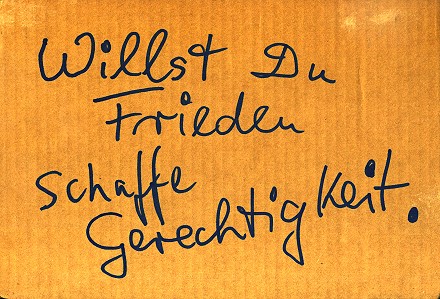 Willst Du
Frieden
schaffe
Gerechtigkeit.